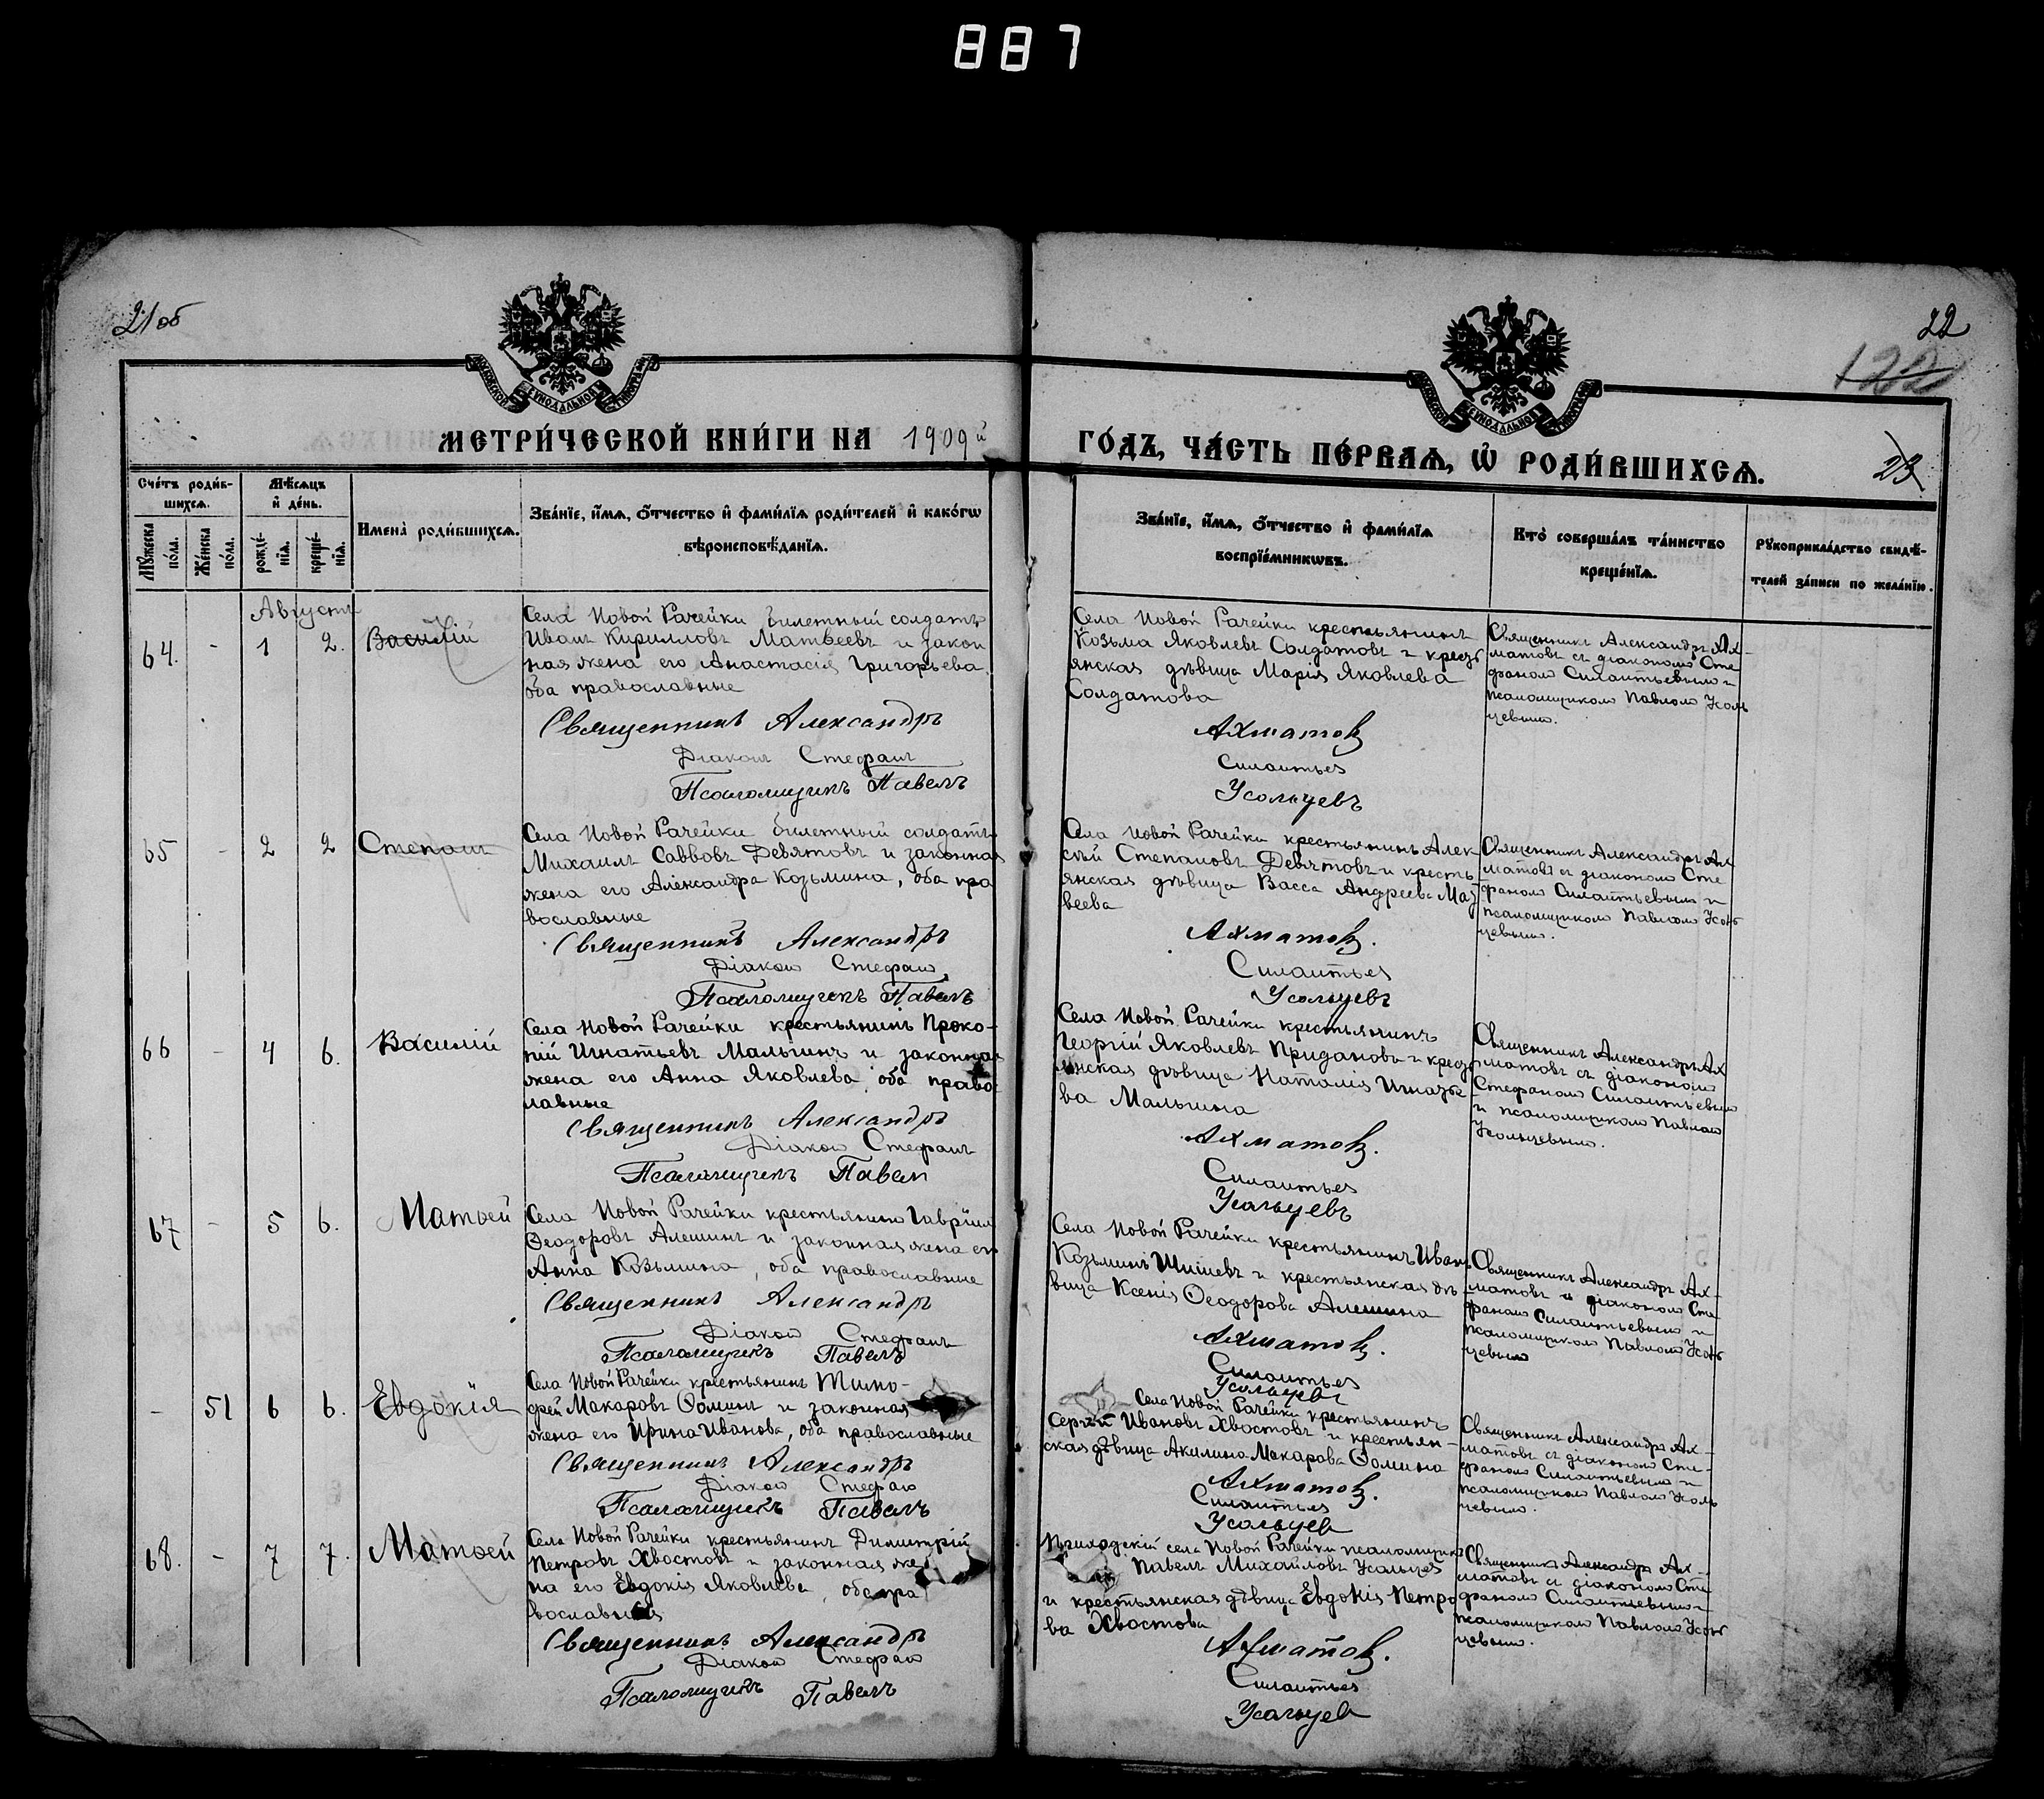 887
21 об
22
122
23
МЕТРИ́ЧЕСКОЙ КНИ́ГИ НА 1909 й
ГО́ДЪ, ЧА́СТЬ ПЕ́РВАѦ, Ѡ РОДИ́ВШИХСѦ.
Сче́тъ роди́в-
шихсѧ.
Мꙋжеска
по́ла.
Же́нска
по́ла.
Мѣ́сѧцъ
и҆ де́нь.
рожде́-
нїѧ.
креще́-
нїѧ.
Имена̀ роди́вшихсѧ.
Зва́нїе, и҆́мѧ, ѻ҆́тчество и҆ фами́лїѧ роди́телей и҆ како́гѡ
вѣроисповѣ́данїѧ.
Зва́нїе, и҆́мѧ, ѻ҆́тчество и҆ фами́лїѧ
воспрїе́мникѡвъ.
Кто̀ соверша́лъ та́инство
креще́нїѧ.
Рꙋкоприкла́дство свидѣ́-
телей за́писи по жела́нїю.
Августъ
64. - 1 2. Василій
Села Новой Рачейки билетный солдатъ
Иванъ Кирилловъ Матвеевъ и закон
ная жена его Анастасія Григорьева,
оба православные
Священникъ Александръ
Діаконъ Стефанъ
Псаломщикъ Павелъ
Села Новой Рачейки крестьянинъ
Козьма Яковлевъ Солдатовъ и кресть
янская дѣвица Марія Яковлева
Солдатова
Ахматовъ
Силантьев
Усольцевъ
Священникъ Александръ Ах-
матовъ съ діакономъ Сте
фаномъ Силантьевымъ и
псаломщикомъ Павломъ Усоль
цевымъ.
65 - 2 2 Степанъ
Села Новой Рачейки билетный солдатъ
Михаилъ Саввовъ Девятовъ и законная
жена его Александра Козьмина, оба пра
вославные
Священникъ Александръ
Діаконъ Стефанъ
Псаломщикъ Павелъ
Села Новой Рачейки крестьянинъ Алек-
сѣй Степановъ Девятовъ и кресть-
янская дѣвица Васса Андреева Мат
веева
Ахматовъ.
Силантьев
Усольцевъ
Священникъ Александръ Ах
матовъ съ діакономъ Сте
фаномъ Силантьевымъ и
псаломщикомъ Павломъ Усоль
цевымъ.
66 - 4 6. Василій
Села Новой Рачейки крестьянинъ Проко-
пій Игнатьевъ Малыгинъ и законная
жена его Анна Яковлева, оба право
лавные
Священникъ Александръ
Діаконъ Стефанъ
Псаломщикъ Павел
Села Новой Рачейки крестьянинъ
Георгій Яковлевъ Придановъ и кресть
янская дѣвица Наталія Игнатье
ва Малыгина
Ахматовъ.
Силантьев
Усольцевъ
Священникъ Александръ Ах
матовъ съ діакономъ
Стефаномъ Силантьевымъ
и псаломщикомъ Павломъ
Усольцевымъ.
67 - 5 6. Матѳей
Села Новой Рачейки крестьянинъ Гавріилъ
Ѳеодоровъ Алешинъ и законная жена его
Анна Козьмина, оба православные
Священникъ Александръ
Діаконъ Стефанъ
Псаломщикъ Павелъ
Села Новой Рачейки крестьянинъ Иванъ
Козьминъ и крестьянская дѣ-
вица Ксенія Ѳеодорова Алешина
Ахматовъ.
Силантьев
Усольцевъ
Священникъ Александръ Ах-
матовъ съ діакономъ Сте
фаномъ Силантьевымъ и
псаломщикомъ Павломъ Усоль
цевымъ
- 51 6 6. Евдокія
Села Новой Рачейки крестьянинъ Тимо-
фей Макаровъ Ѳоминъ и законная
жена его Ирина Иванова, оба православные
Священникъ Александръ
Діаконъ Стефанъ
Псаломщикъ Павелъ
Села Новой Рачейки крестьянинъ
Сергѣй Ивановъ Хвостовъ и крестьян-
ская дѣвица Акилина Макарова Ѳомина
Ахматовъ.
Силантьев
Усольцев
Священникъ Александръ Ах-
матовъ съ діакономъ Сте-
фаномъ Силантьевымъ и
псаломщикомъ Павломъ Усоль
цевымъ.
68. - 7 7. Матѳей
Села Новой Рачейки крестьянинъ Димитрій
Петровъ Хвостовъ и законная же
на его Евдокія Яковлева, оба пра
вославные
Священникъ Александръ
Діаконъ Стефанъ
Псаломщикъ Павелъ
села Новой Рачейки псаломщикъ
Павелъ Михайловъ Усольцев
и крестьянская дѣвица Евдокія Петро
ва Хвостова
Ахматовъ.
Силантьев
Усольцев
Священникъ Александръ Ах-
матовъ съ діакономъ Сте
фаномъ Силантьевымъ и
псаломщикомъ Павломъ Усоль
цевымъ.